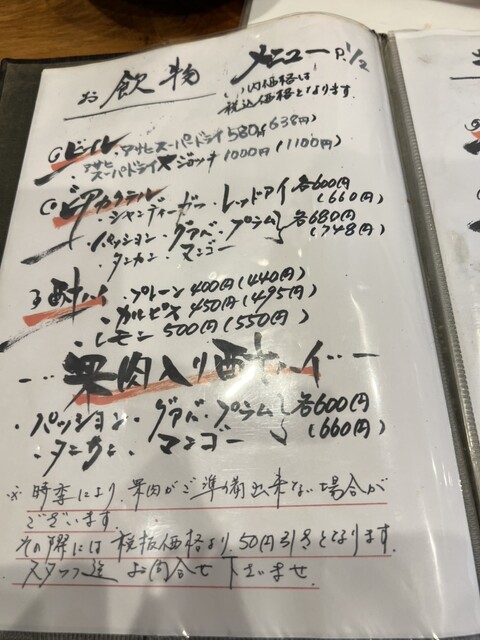 お飲物 メニュー P.1/2
( )内価格は
税込価格となります。
◎ビール・アサヒスーパードライ 580円(638円)
アサヒスーパードライ大ジョッキ 1000円(1100円)
◎卵カクテル
・シャンディーガフ・レッドアイ 各600円(660円)
・パッション・グァバ・プラム 各680円(748円)
・タンカン・マンゴー
酎ハイ・プレーン 400円(440円)
・カルピス 450円(495円)
・レモン 500円(550円)
…果肉入り酎ハイ…
・パッション・グァバ・プラム 各600円
・タンカン・マンゴー (660円)
※時季により、果肉がご準備出来ない場合が
ございます。
その際には税抜価格より、50円引きとなります。
スタッフ迄 お問合せ 下さいませ。